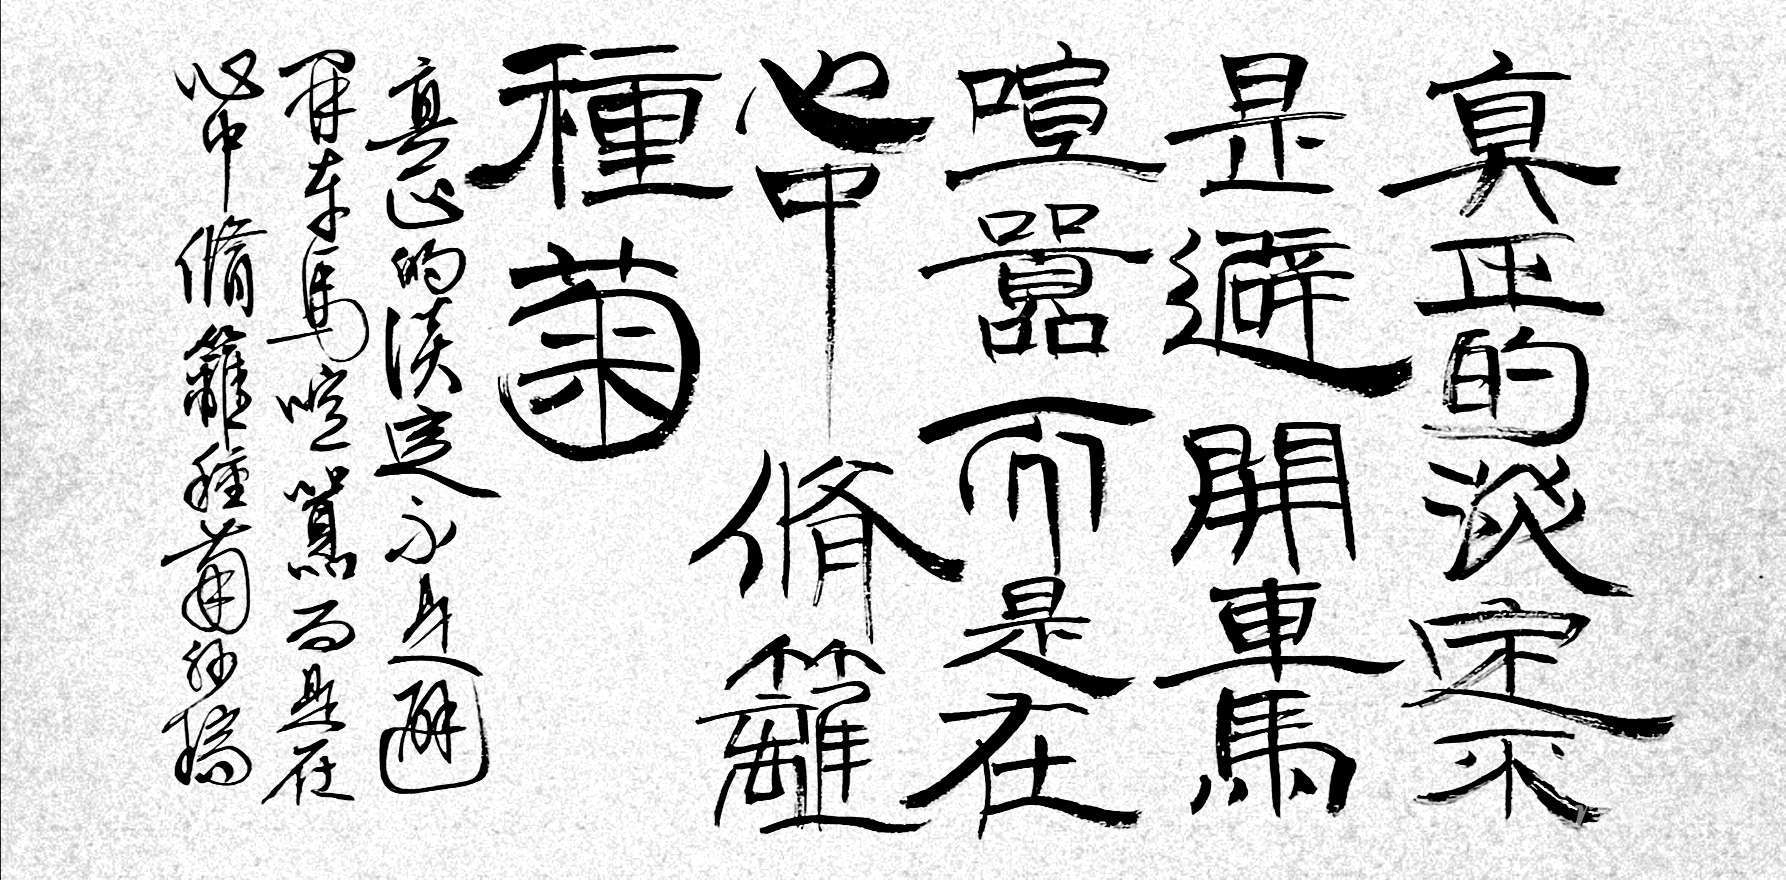 真正的淡定不
是避開車馬
喧囂而是在
心中脩籬
種菊
真正的淡定不是避
開車馬喧囂而是在
心中脩籬種菊